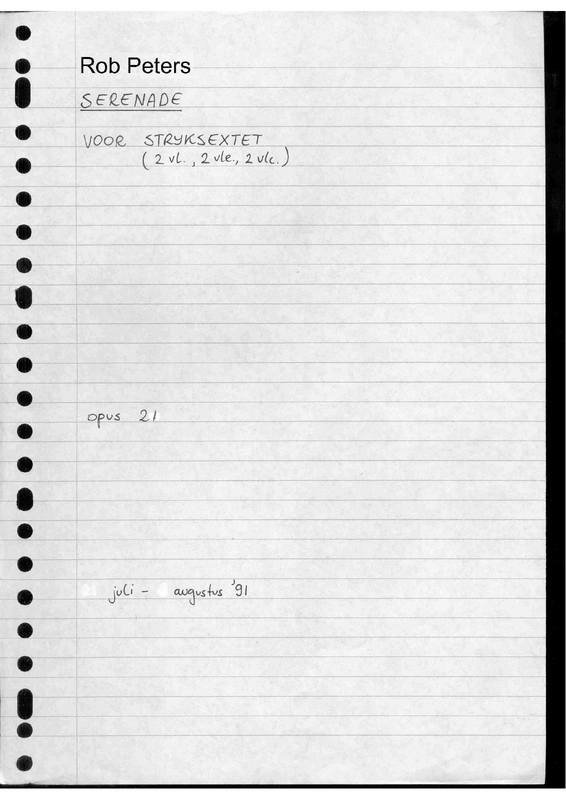 Rob Peters
SERENADE
VOOR STRYKSEXTET
( 2 vl. , 2 vle., 2 vlc. )
opus 21
juli - augustus '91